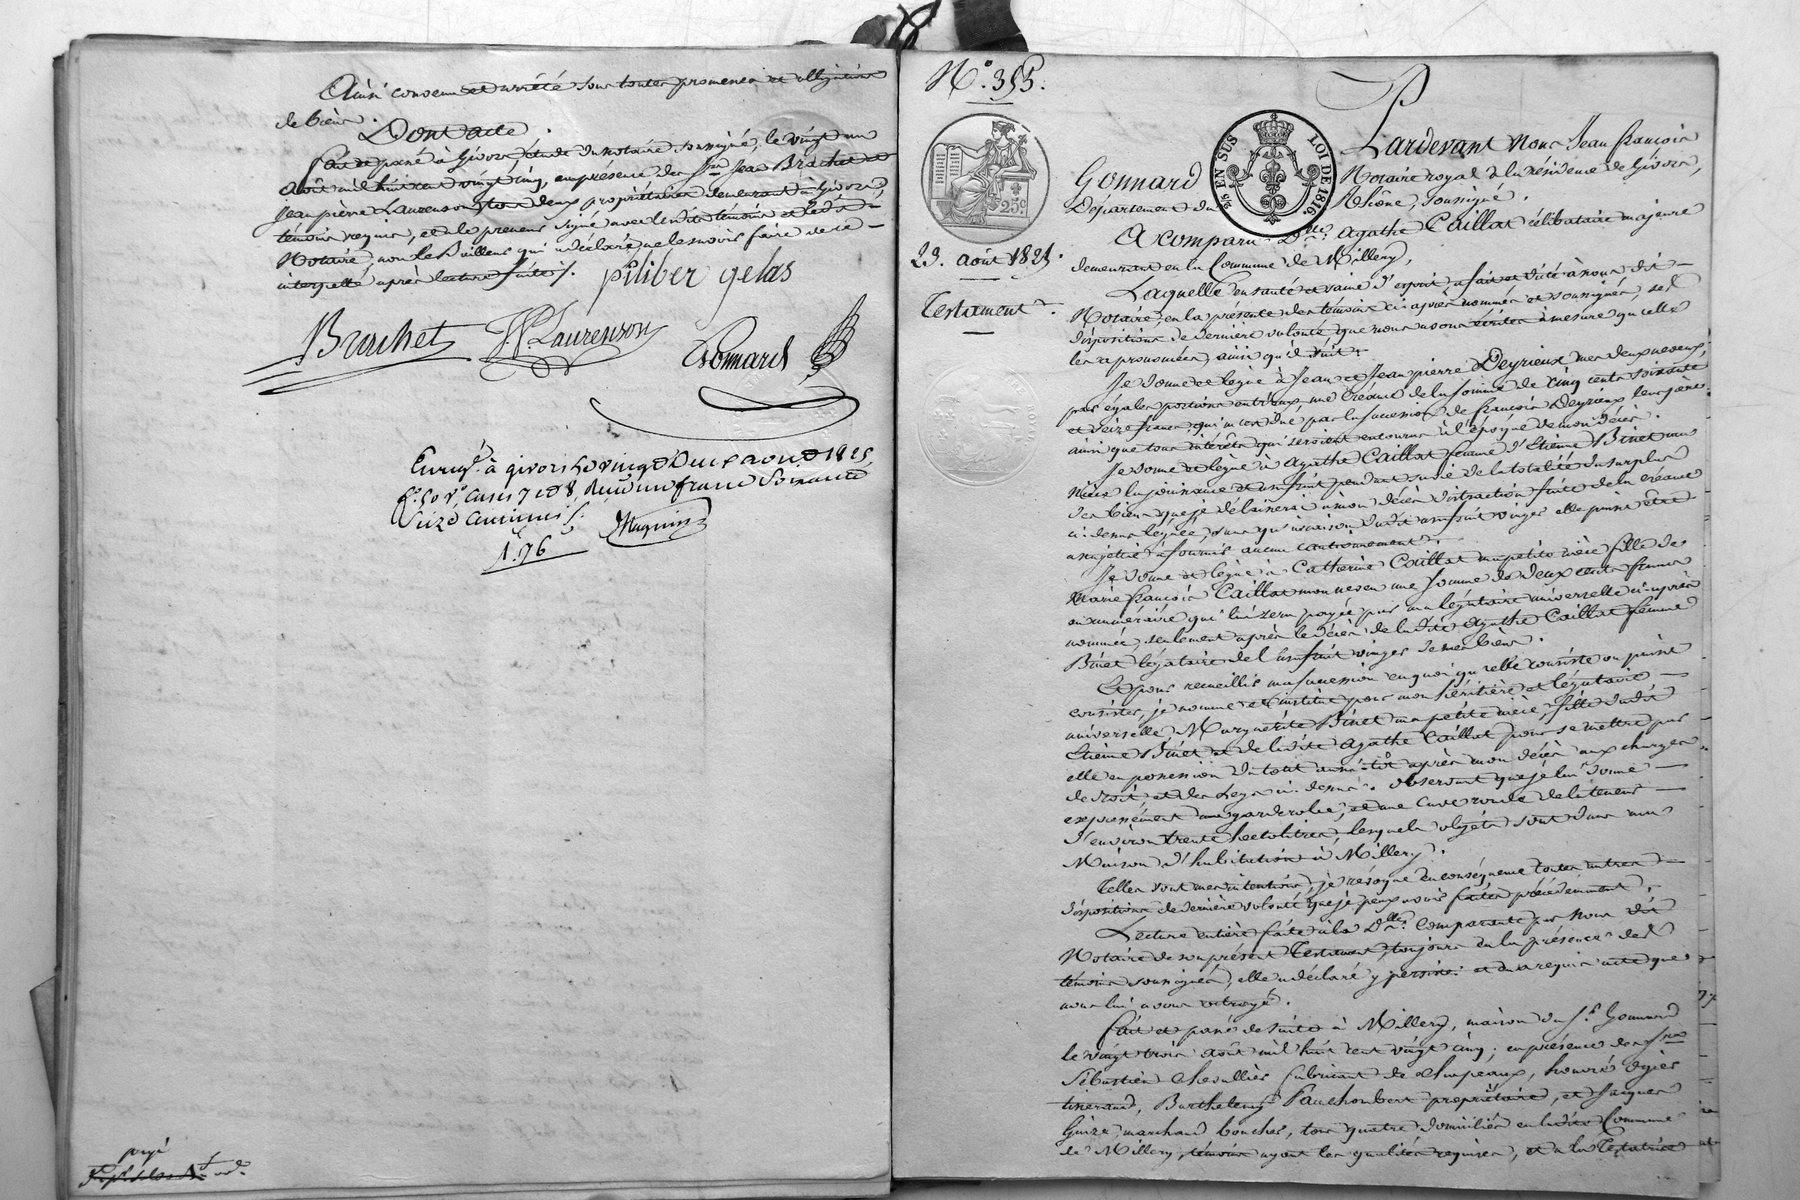 Ainsi convenu et arrêté sous toutes promesses et obligations
de biens.
Dont acte.
Fait et passé à Givors, étude du notaire soussigné, le vingt un
août mil huit cent vingt cinq, en présence des Srs Jean Brachet et
Jean pierre Laurenson, tous deux propriétaires demeurant à Givors,
témoins requis, et le preneur signé avec lesdits témoins et ledit
Notaire, non le Bailleur qui a déclaré ne le savoir faire de ce
interpellé après lecture faite ./.
piliber gelas
Brachet JP Laurenson Gonnard
Enregé à givors le vingt deux aout 1825
fo 50 vo cases 7 et 8, Reçu un franc soixante
seize centimes ./.
1.76 Magnin
payé
No. 355.
25 EN SUS LOI DE 1816
25c
23. août 1825.
Testament.
Pardevant Nous Jean françois
Gonnard Notaire royal à la résidence de Givors,
Département du Rhône, soussigné.
A comparu Dlle Agathe Caillat célibataire majeure
demeurant en la Commune de Millery,
Laquelle en santé et saine d'esprit a fait et dicté à nous dit
Notaire, en la présence des témoins ci-après nommés et soussignés, ses
dispositions de dernière volonté, que nous avons écrites à mesure qu'elle
les a prononcées, ainsi qu'il suit.
Je donne et lègue à Jean et Jean pierre Deyrieux mes deux neveux,
par égales portions entr'eux, une créance de la somme de cinq cents soixante
et seize francs, qui m'est due par la succession de françois Deyrieux leur père
ainsi que tous intérêts qui seroient en cours à l'époque de mon décès.
Je donne et lègue à Agathe Caillat femme d'Etienne Binet ma
nièce la jouissance et usufruit pendant sa vie de la totalité du surplus
des biens que je délaisserai à mon décès distraction faite de la créance
ci-dessus léguée, sans qu'à raison dudit usufruit viager elle puisse être
assujettie à fournir aucun cautionnement.
Je donne et lègue à Catherine Caillat ma petite nièce fille de
Marie françois Caillat mon neveu une somme de deux cents francs
en numéraire qui lui sera payée par ma légataire universelle ci-après
nommée, seulement après le décès de ladite Agathe Caillat femme
Binet légataire de l'usufruit viager de mes biens.
Et pour recueillir ma succession en quoi qu'elle consiste ou puisse
consister, je nomme et institue pour mon héritière et légataire
universelle, Marguerite Binet ma petite nièce, fille dudit
Etienne Binet et de ladite Agathe Caillat pour se mettre par
elle en possession du tout aussi-tôt après mon décès aux charges
de droit, et des Legs ci-dessus. observant que je lui donne
expressément ma garderobe, et une cuve ronde de la teneur
d'environ trente hectolitres, lesquels objets sont dans ma
Maison d'habitation à Millery.
Telles sont mes intentions, je révoque en conséquence toutes autres
dispositions de dernière volonté que je peux avoir faites précédemment.
Lecture entière faite à la Dlle comparante par nous dit
Notaire de son présent Testament, toujours en la présence des
témoins soussignés, elle a déclaré y persister et en a requis acte que
nous lui avons octroyé.
Fait et passé de suite à Millery, maison du Sr Gonnard
le vingt trois août mil huit cent vingt cinq; en présence des Srs
Sébastien Chevallier fabricant de chapeaux, honoré Ogier
tisserand, Barthelemy Fauchombert propriétaire, et Jacques
Guize marchand boucher, tous quatre domiciliés en ladite Commune
de Millery, témoins ayant les qualités requises, et a la Testatrice